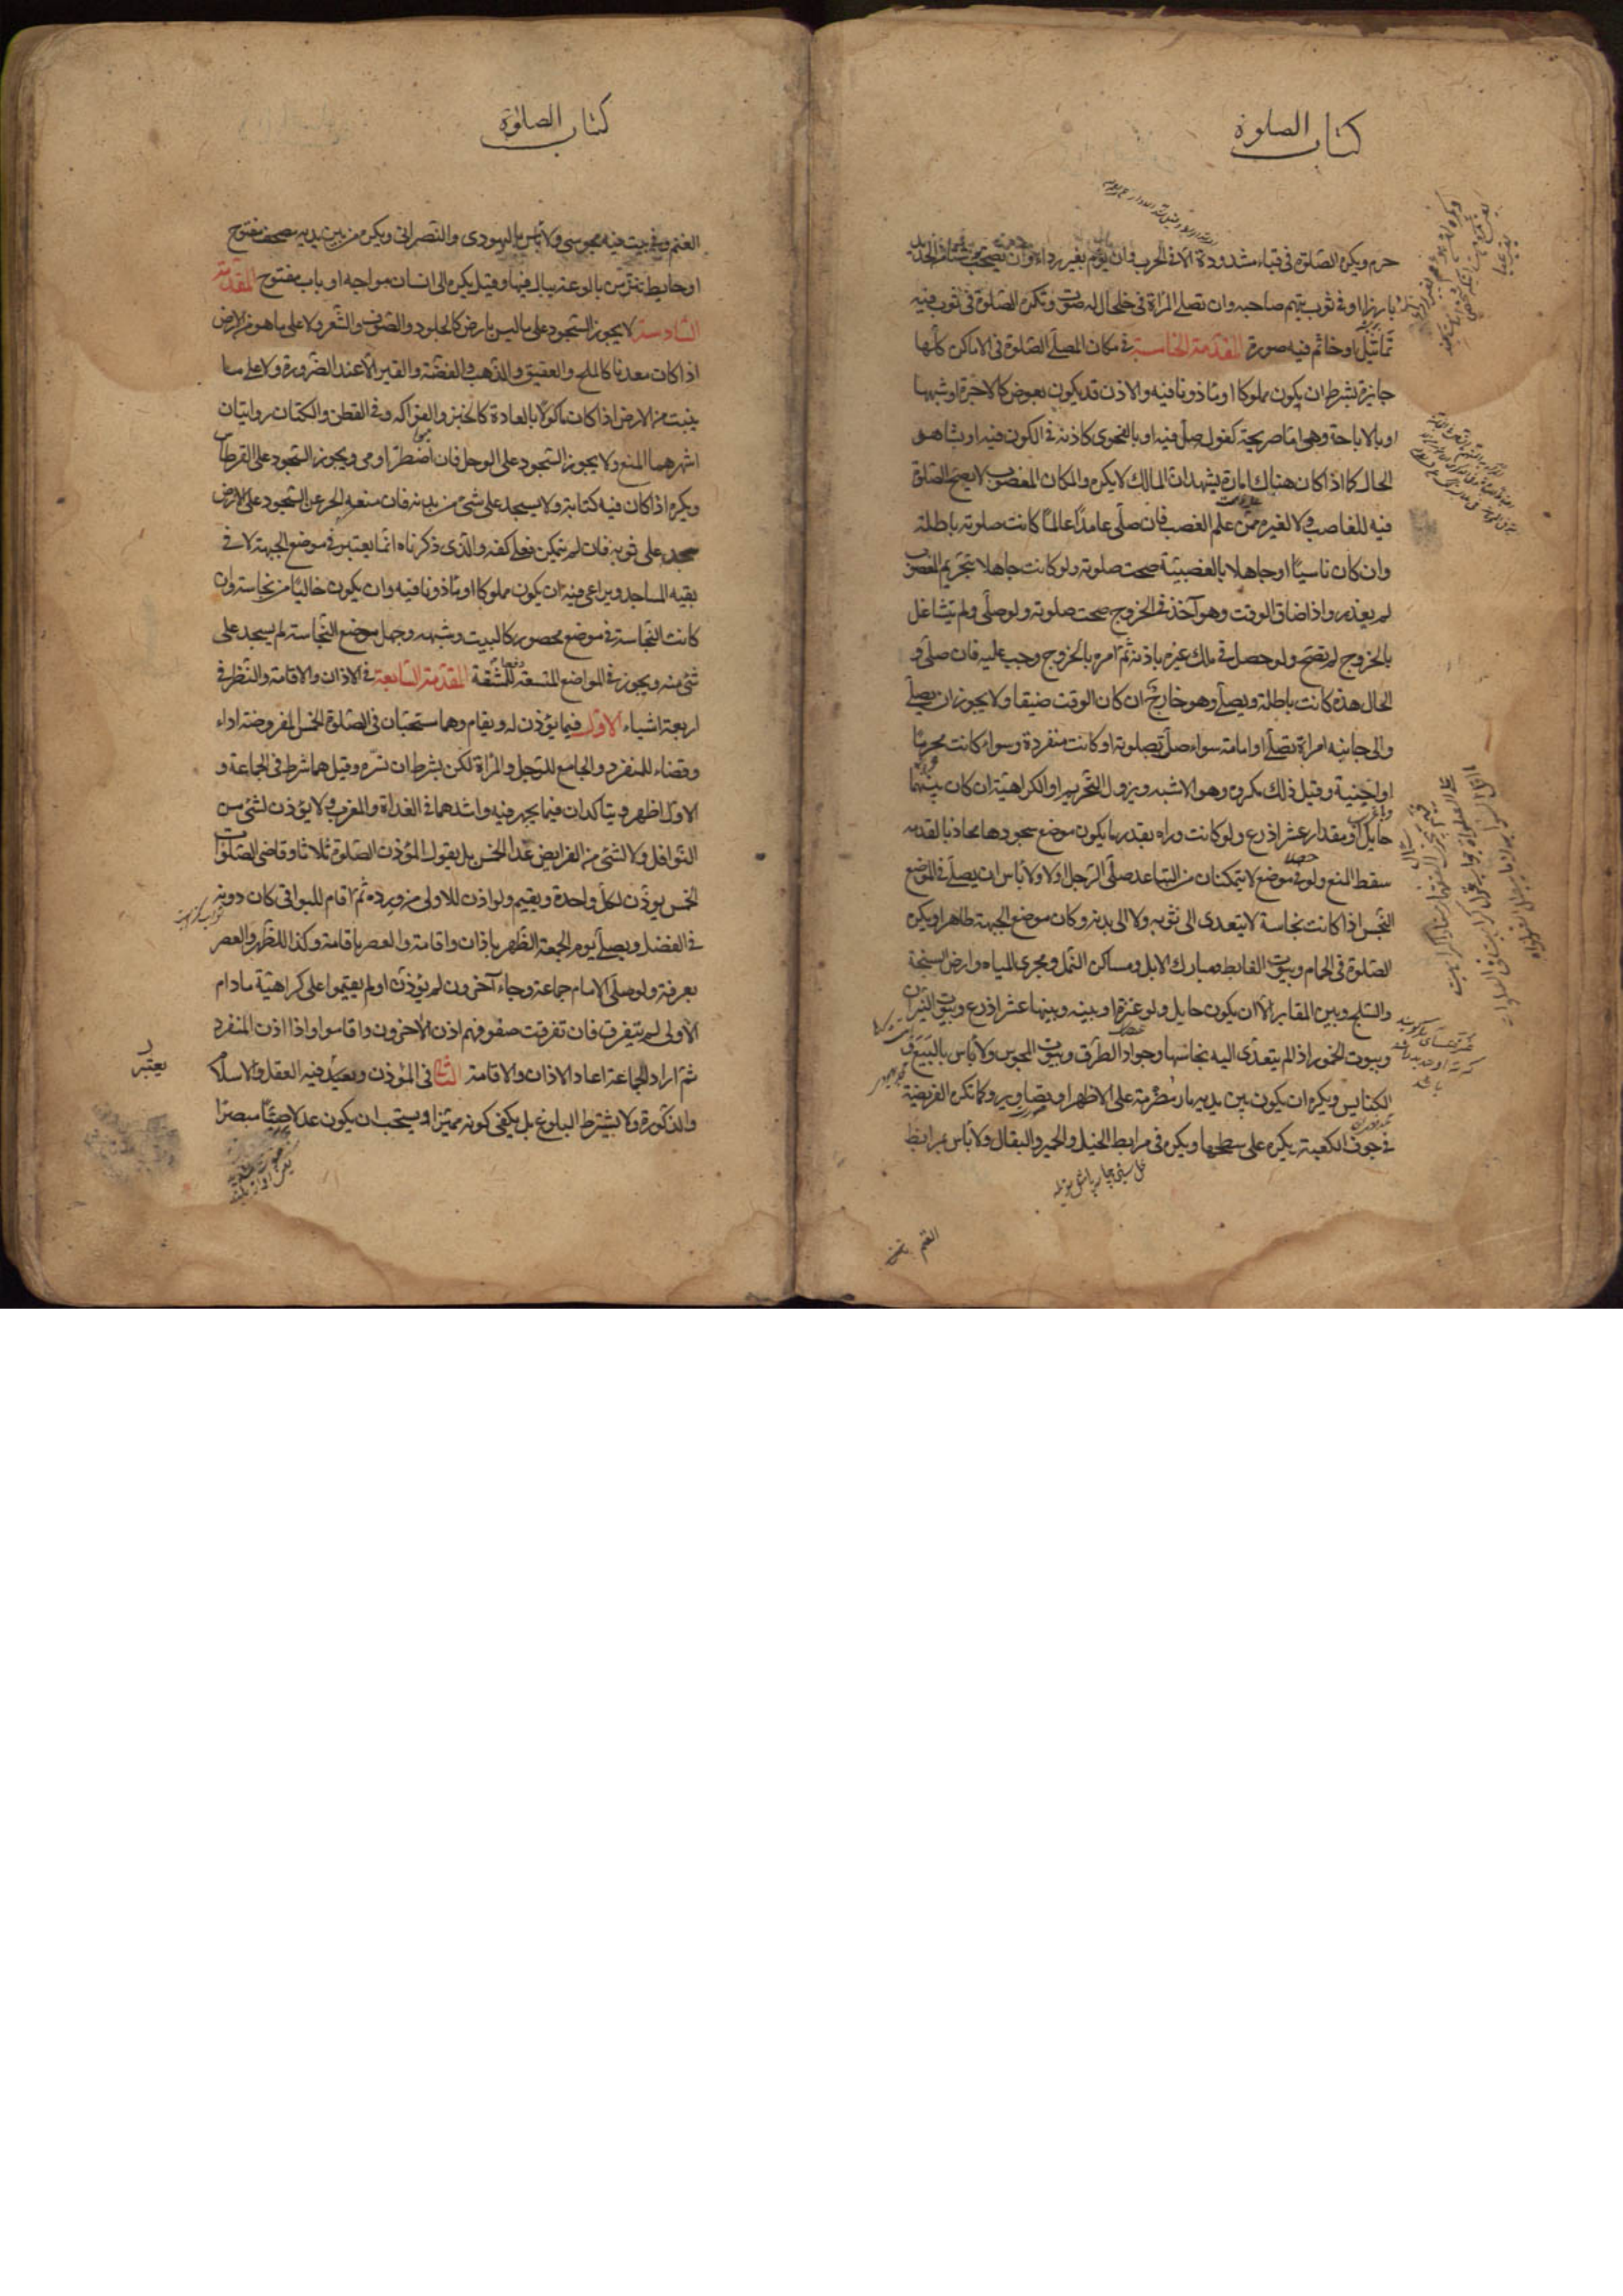 كتاب الصلوة
حرم ويكره الصلوة في قباء مشدود الا في الحرب وان يؤم بغير رداء وان يصحب شيئا من الحديد
بارزا او في ثوب يتهم صاحبه وان تصلي المرأة في خلخال له صوت وتكره الصلوة في ثوب فيه
تماثيل او خاتم فيه صورة المقدمة الخامسة في مكان المصلي الصلوة في الاماكن كلها
جايزة بشرط ان يكون مملوكا او ماذونا فيه والاذن قد يكون بعوض كالاجرة وشبهها
او بالاباحة وهي اما صريحة كقوله صل فيه او بالفحوى كاذنه في الكون فيه او بشاهد
الحال كما اذا كان هناك امارة يشهد ان المالك لا يكره والمكان المغصوب لا يصح الصلوة
فيه للغاصب ولا لغيره ممن علم الغصب فان صلى عامدا عالما كانت صلوته باطلة
وان كان ناسيا او جاهلا بالغصبية صحت صلوته ولو كانت جاهلا بتحريم الغصب
لم يعذر واذا ضاق الوقت وهو آخذ في الخروج صحت صلوته ولو صلى ولم يتشاغل
بالخروج لم تصح ولو حصل في ملك غيره باذنه ثم امره بالخروج وجب عليه فان صلى و
الحال هذه كانت باطلة ويصلي وهو خارج ان كان الوقت ضيقا ولا يجوز ان يصلي
والى جانبه امراة تصلي او امامه سواء صلت بصلوته او كانت منفردة وسواء كانت محرما
او اجنبية وقيل ذلك مكروه وهو الاشبه ويزول التحريم او الكراهية ان كان بينهما
حايل او مقدار عشر اذرع ولو كانت وراه بقدر ما يكون موضع سجودها محاذيا لقدمه
سقط المنع ولو حصلا في موضع لا يتمكنان من التباعد صلى الرجل اولا ولا بأس ان يصلي في الموضع
النجس اذا كانت نجاسة لا يتعدى الى ثوبه ولا الى بدنه وكان موضع الجبهة طاهرا ويكره
الصلوة في الحمام وبيوت الغايط ومبارك الابل ومساكن النمل ومجرى المياه وارض السبخة
والثلج وبين المقابر الا ان يكون حايل ولو عنزة او بينه وبينها عشر اذرع وبيوت النيران
وبيوت الخمور اذا لم يتعدى اليه نجاستها وجواد الطرق وبيوت المجوس ولا بأس بالبيع و
الكنايس ويكره ان يكون بين يديه نار مضرمة على الاظهر او تصاوير وكما تكره الفريضة
في جوف الكعبة يكره على سطحها ويكره في مرابط الخيل والحمير والبغال ولا بأس بمرابط
الغنم
كتاب الصلوة
الغنم وفي بيت فيه مجوسي ولا بأس باليهودي والنصراني ويكره من بين يديه مصحف مفتوح
او حايط ينز من بالوعة يبال فيها وقيل يكره الى انسان مواجه او باب مفتوح المقدمة
السادسة لا يجوز السجود على ما ليس بارض كالجلود والصوف والشعر ولا على ما هو من الارض
اذا كان معدنا كالملح والعقيق والذهب والفضة والقير الا عند الضرورة ولا على ما
ينبت من الارض اذا كان ماكولا بالعادة كالخبز والفواكه وفي القطن والكتان روايتان
اشهرهما المنع ولا يجوز السجود على الوحل فان اضطر اومى ويجوز السجود على القرطاس
ويكره اذا كان فيه كتابة ولا يسجد على شيء من بدنه فان منعه الحر عن السجود على الارض
سجد على ثوبه فان لم يتمكن فعلى كفه والذي ذكرناه انما يعتبر في موضع الجبهة لا في
بقيه المساجد ويراعى فيه ان يكون مملوكا او ماذونا فيه وان يكون خاليا من نجاسة وان
كانت النجاسة في موضع محصور كالبيت وشبهه وجهل موضع النجاسة لم يسجد على
شيء منه ويجوز في المواضع المتسعة دفعا للمشقة المقدمة السابعة في الاذان والاقامة والنظر في
اربعة اشياء الاول فيما يؤذن له ويقام وهما مستحبان في الصلوة الخمس المفروضة اداء
وقضاء للمنفرد والجامع للرجل والمرأة لكن بشرط ان تسره وقيل هما شرط في الجماعة و
الاول اظهر ويتاكدان فيما يجهر فيه واشدهما في الغداة والمغرب ولا يؤذن لشيء من
النوافل ولا لشيء من الفرايض عدا الخمس بل يقول المؤذن الصلوة ثلاثا وقاضي الصلوات
الخمس يوذن لكل واحدة ويقيم ولو اذن للاولى من ورده ثم اقام للبواقي كان دونه
في الفضل ويصلي يوم الجمعة الظهر باذان واقامة والعصر باقامة وكذا الظهر والعصر
بعرفة ولو صلى الامام جماعة وجاء آخرون لم يؤذن او لم يقيموا على كراهية ما دام
الاولى لم يتفرق فان تفرقت صفوفهم اذن الاخرون واقاموا واذا اذن المنفرد
ثم اراد الجماعة اعاد الاذان والاقامة الثاني في المؤذن ويعتبر فيه العقل والاسلام
والذكورة ولا يشترط البلوغ بل يكفي كونه مميزا ويستحب ان يكون عدلا صيتا مبصرا
يعتبر